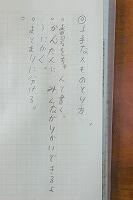 ◎上手なメモのとり方
。かんたんに みんながりかいできるよ
うにかく。
。まとまりに分ける。